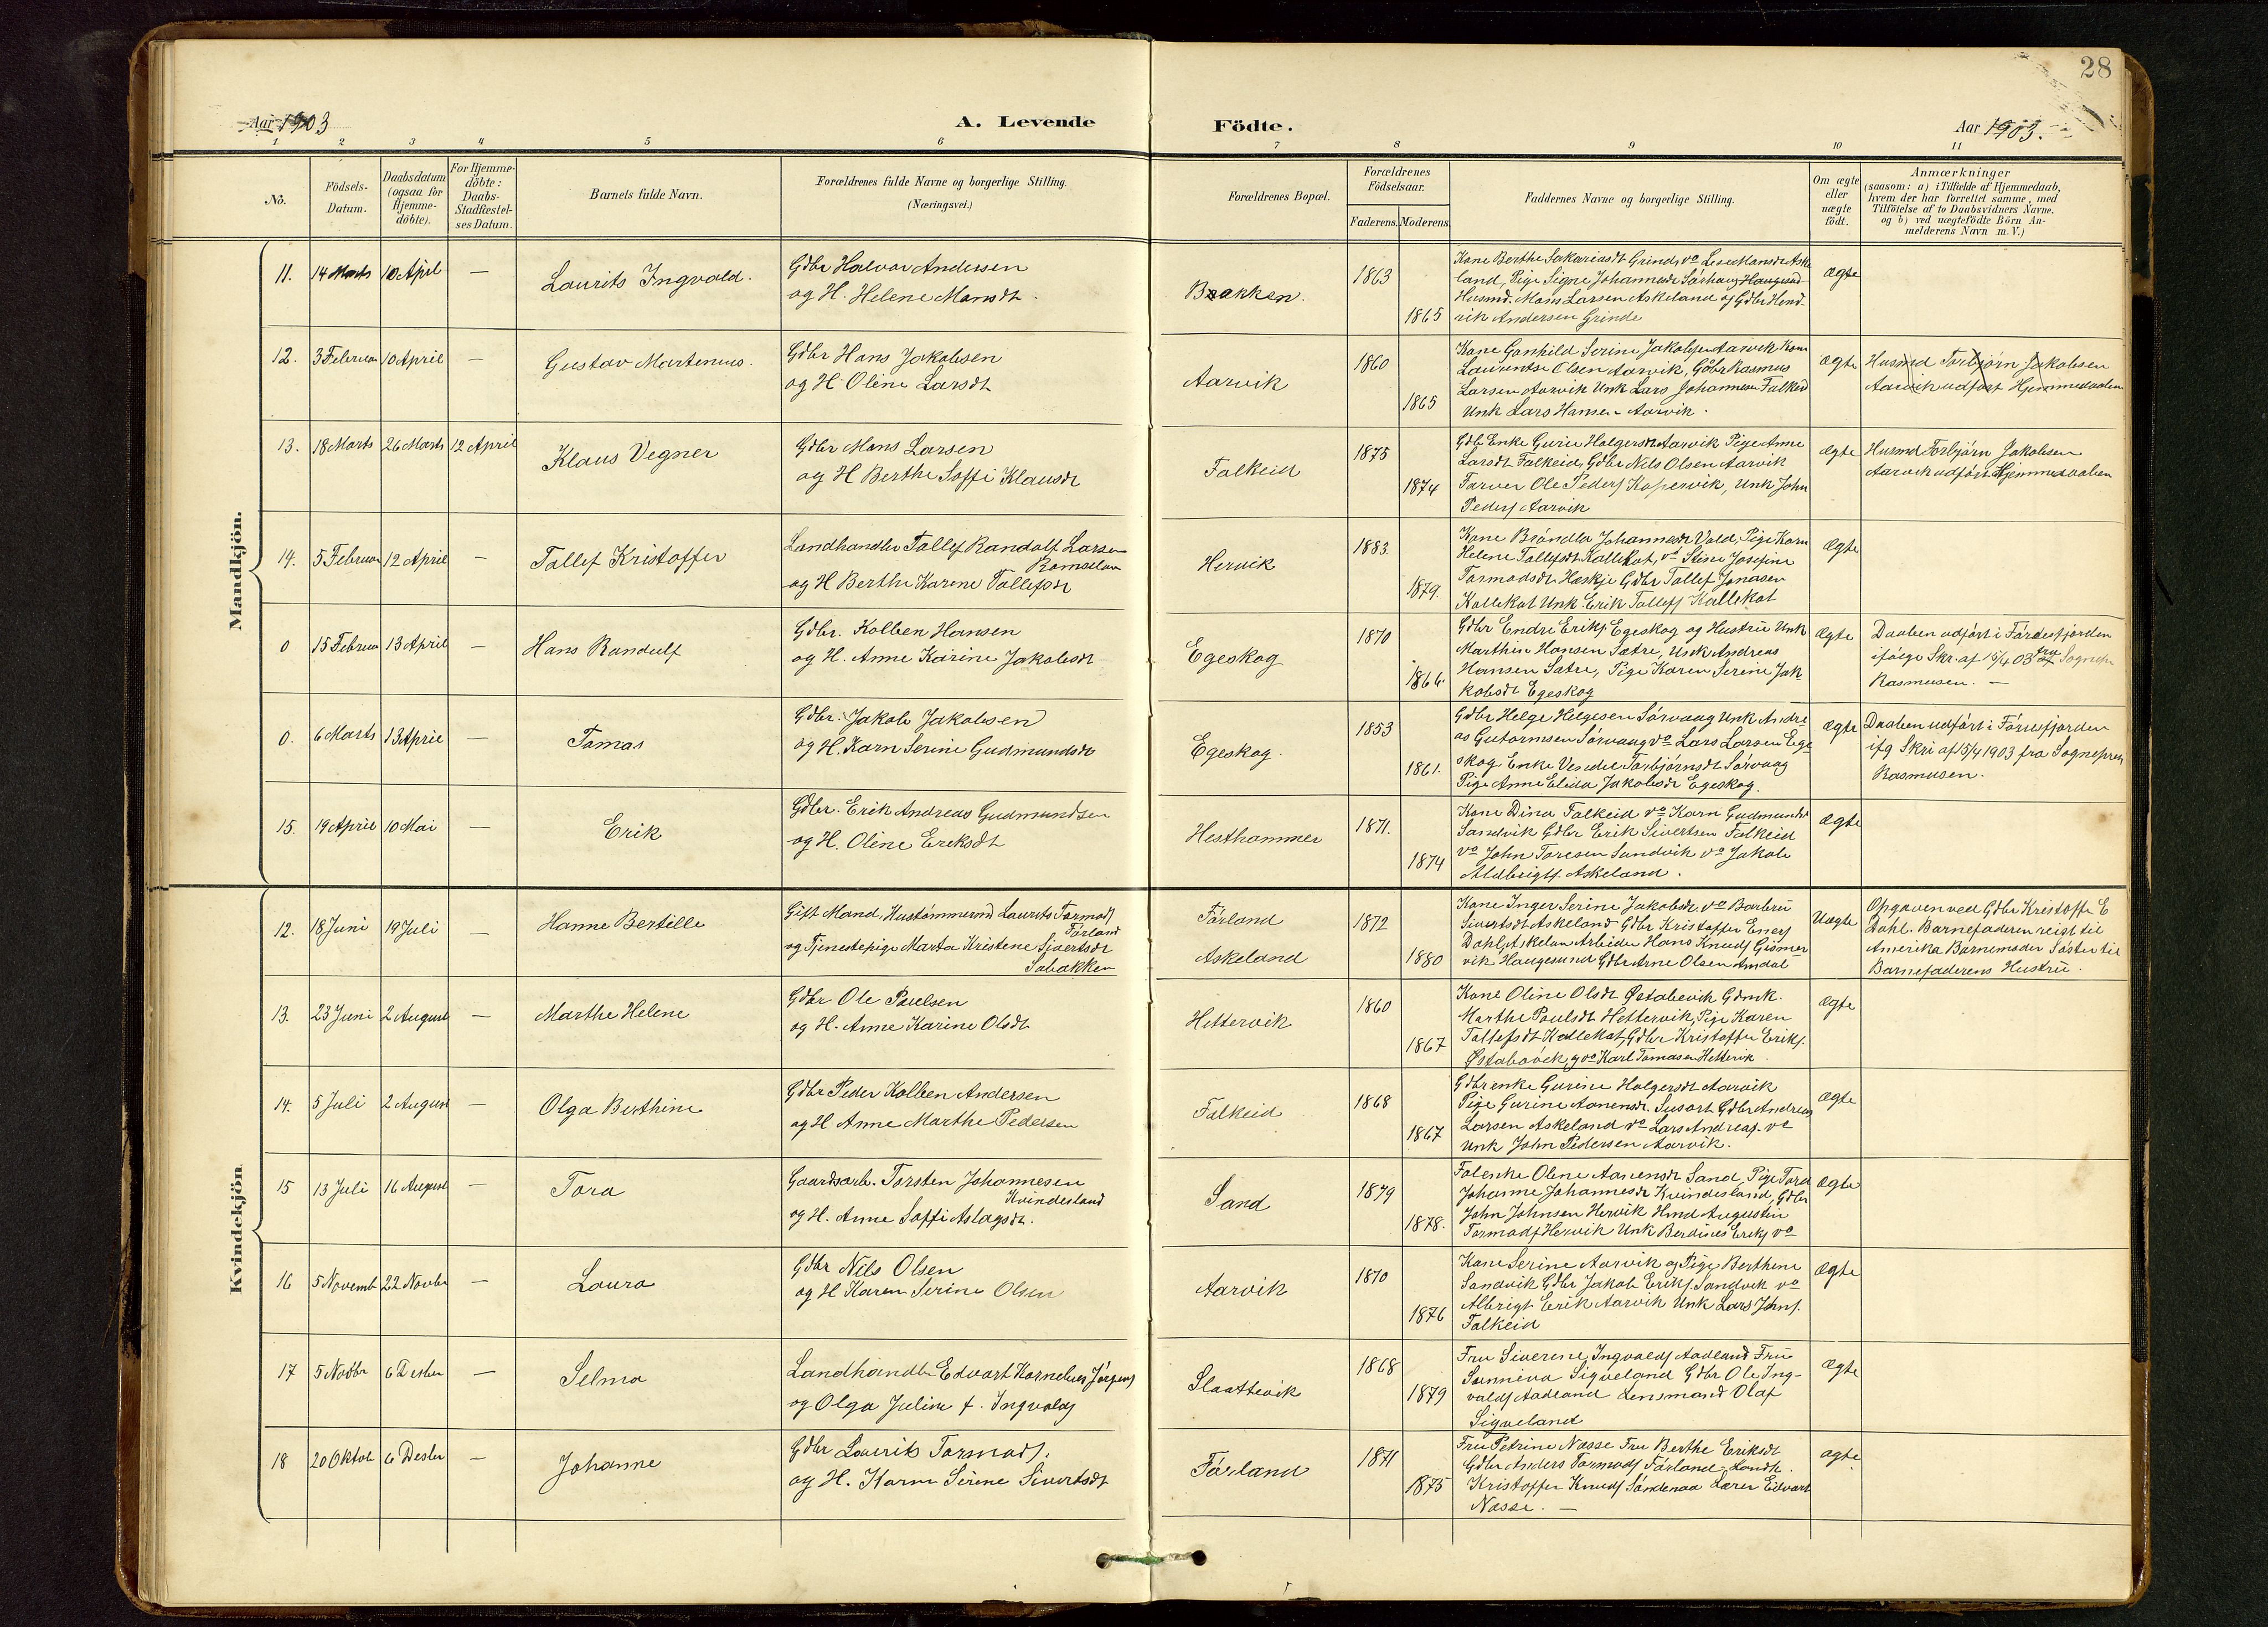 28
Aar 1903
A. Levende
Födte.
Aar 1903.
1 2 3 4 5 6 7 8 9 10 11
No.
Födsels-
Datum.
Daabsdatum
(ogsaa for
Hjemme-
döbte).
For Hjemme-
döbte:
Daabs-
Stadfæstel-
ses Datum.
Barnets fulde Navn.
Forældrenes fulde Navne og borgerlige Stilling.
(Næringsvei.)
Forældrenes Bopæl.
Forældrenes
Födselsaar.
Faderens. Moderens
Faddernes Navne og borgerlige Stilling.
Om ægte
eller
uægte
födt.
Anmærkninger
(saasom: a) i Tilfælde af Hjemmedaab,
hvem der har forrettet samme, med
Tilföielse af to Daabsvidners Navne.
og b) ved uægtefödte Börn An-
melderens Navn m. V.)
Mandkjön.
11. 14 Marts 10 April — Laurits Ingvald.
Gdbr Halvor Andersen
og H. Helene Monsdt.
Bakken.
1863
1865
Kone Berthe Sakariasdt Grinde, vo Lese Monsdt Aske
land, Pige Signe Johannesdt Sörhaug Haugesund
Husmd. Mons Larsen Askeland og Gdbr Hend-
rik Andersen Grinde
Ægte
12. 3 Februar 10 April — Gustav Martenus.
Gdbr Hans Jakobsen
og H. Oline Larsdt
Aarvik
1860
1865
Kone Gonhild Serine Jakobsen Aarvik Kone
Laurentse Olsen Aarvik, Gdbr Rasmus
Larsen Aarvik Unk Lars Johannesen Falkeid
Unk Lars Hansen Aarvik.
Ægte
Husmd Torbjörn Jakobsen
Aarvik udfört Hjemmedaaben
13. 18 Marts 26 Marts 12 April Klaus Vegner
Gdbr Mons Larsen
og H Berthe Soffi Klausdt
Falkeid
1875
1874
Gdb Enke Gurie Holgersdt Aarvik Pige Anne
Larsdt Falkeid, Gdbr Nils Olsen Aarvik
Farver Ole Peders Kopervik, Unk John
Peders Aarvik
Ægte
Husmd Torbjörn Jakobsen
Aarvik udfört Hjemmedaaben
14. 5 Februar 12 April — Tollef Kristoffer
Landhandler Tollef Randolf Larsen
Ramsland
og H Berthe Karine Tollefsdt
Hervik
1883.
1879.
Kone Bröndla Johannesdt Vold, Pige Karn
Helene Tollefsdt Kallekot, vo Stine Josefine
Tormodsdt Haskje Gdbr Tollef Jonasen
Kallekot Unk Erik Tollefs Kallekot
Ægte
0 15 Februar 13 April — Hans Randulf
Gdbr. Kolben Hansen
og H. Anne Karine Jakobsdt
Egeskog
1870
1866.
Gdbr Endre Eriks Egeskog og Hustru Unk
Marthin Hansen Sætre, Unk Andreas
Hansen Sætre, Pige Karen Serine Jak-
kobsdt Egeskog
Ægte
Daaben udfört i Fördesfjorden
ifölge Skr. af 15/4 03 fra Sognepr
Rasmusen. —
0. 6 Marts 13 April — Tomas
Gdbr. Jakob Jakobsen
og H. Karn Serine Gudmundsdt
Egeskog.
1853
1861.
Gdbr Helge Helgesen Sörvaag Unk Andre-
as Gutormsen Sörvaag vo Lars Larsen Ege
skog Enke Vendel Torbjörnsdt Sörvaag
Pige Anne Elida Jakobsdt Egeskog.
Ægte
Daaben udfört i Föresfjorden
ifg Skri af 15/4 1903 fra Sognepres
Rasmusen.
15. 19 April 10 Mai — Erik
Gdbr. Erik Andreas Gudmundsen
og H. Oline Ereksdt
Hesthammer
1871.
1874
Kone Dina Falkeid vo Karn Gudmundsd
Sandvik Gdbr Erik Sivertsen Falkeid
vo John Toresen Sandvik vo Jakob
Aldbrigts. Askeland.
Ægte
Kvindekjön
12. 18 Juni 19 Juli — Hanne Bertille
Gift Mand, Hustömmermd Laurits Tormods
Förland
og Tjenestepige Marta Kristene Sivertsdt
Solbakken
Förland
Askeland
1872
1880
Kone Inger Serine Jakobsdt. vo Barbru
Sivertsdt Askeland Gdbr Kristoffer Eners
Dahl Askeland Arbeider Hans Knuds Gismer
vik Haugesund Gdbr Arne Olsen Amdal
Uægte
Opgaven ved Gdbr Kristoffe E
Dahl. Barnefaderen reist til
Amerika Barnemoder Söster til
Barnefaderens Hustru.
13. 23 Juni 2 August — Marthe Helene
Gdbr Ole Paulsen
og H. Anne Karine Olsdt
Hettervik
1860
1867
Kone Oline Olsdt Østabøvik Gdmk.
Marthe Paulsdt Hettervik, Pige Karen
Tollefsdt Kallekot, Gdbr Kristoffer Eriks.
Østabøvik, g vo Karl Tomasen Hettervik.
Ægte
14. 5 Juli 2 August — Olga Berthine
Gdbr Peder Kolben Andersen
og H Anne Marthe Pedersen
Falkeid
1868
1867
Gdbrenke Gurine Holgersdt Aarvik
Pige Gurine Aanensdt. Susort Gdbr Andreas
Larsen Askeland vo Lars Andreas. vo
Unk John Pedersen Aarvik.
Ægte
15 13 Juli 16 August — Tora
Gaardsarb. Torsten Johannesen
Kvindesland
og H. Anne Soffi Aslagsdt.
Sand
1879
1878.
Folenke Olene Aanensdt Sand, Pige Tord
Johanne Johannesdt Kvindesland, Gdbr
John Johnsen Hervik Hmd Augustin
Tormods Hervik Unk Berdines Eriks vo
Ægte
16 5 Novemb 22 Novbr — Laura
Gdbr Nils Olsen
og H Karen Serine Olsen
Aarvik
1870
1876
Kone Serine Aarvik og Pige Berthene
Sandvik Gdbr Jakob Eriks. Sandvik vo
Albrigt Erik Aarvik Unk Lars Johns.
Falkeid
Ægte
17 5 Novbr 6 Desber — Selma
Landhandler Edvart Kornelius Jörgens
og Olga Juline f. Ingvalds
Slaattevik
1868
1879
Fru Siverine Ingvalds Aadland Fru
Sunniva Sigveland Gdbr Ole Ing-
valds Aadland Lensmand Olaf
Sigveland
Ægte
18 20 Oktob 6 Desber — Johanne
Gdbr Laurits Tormods.
og H. Karn Serine Sivertsdt
Förland
1871
1875
Fru Petrine Nasse Fru Berthe Eriksdt
Gdbr Anders Tormods Förland Handh.
Kristoffer Knuds Söndenaa Lærer Edvart
Nasse. —
ægte